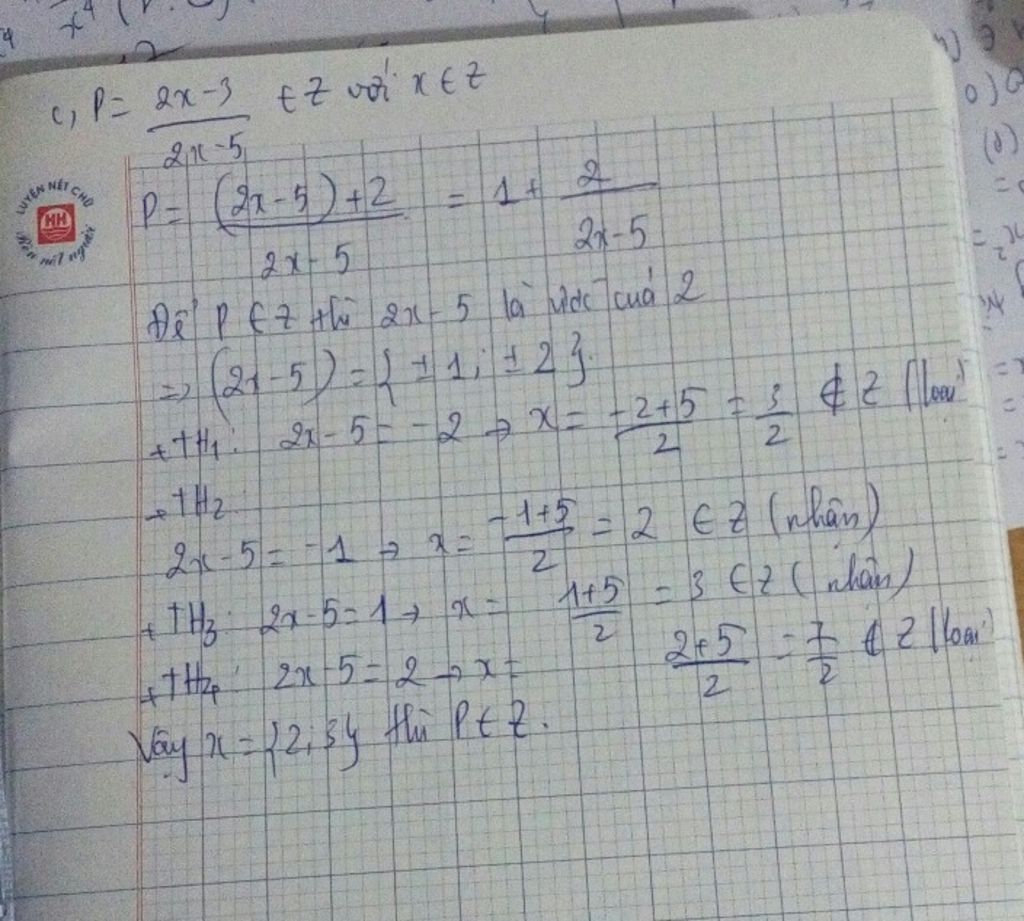 c, P = (2x-3)/(2x-5) ∈ Z với x ∈ Z
P = ((2x-5)+2)/(2x-5) = 1 + 2/(2x-5)
Để P ∈ Z thì 2x-5 là ước của 2
=> (2x-5) = { ±1; ±2 }.
+ TH1: 2x-5 = -2 → x = (-2+5)/2 = 3/2 ∉ Z (loại
+ TH2
2x-5 = -1 → x = (-1+5)/2 = 2 ∈ Z (nhận)
+ TH3: 2x-5 = 1 → x = (1+5)/2 = 3 ∈ Z (nhận)
+ TH4: 2x-5 = 2 → x = (2+5)/2 = 7/2 ∉ Z (loại
Vậy x = {2; 3} thì P ∈ Z.
LUYỆN NÉT CHỮ
HH
Rèn nết người